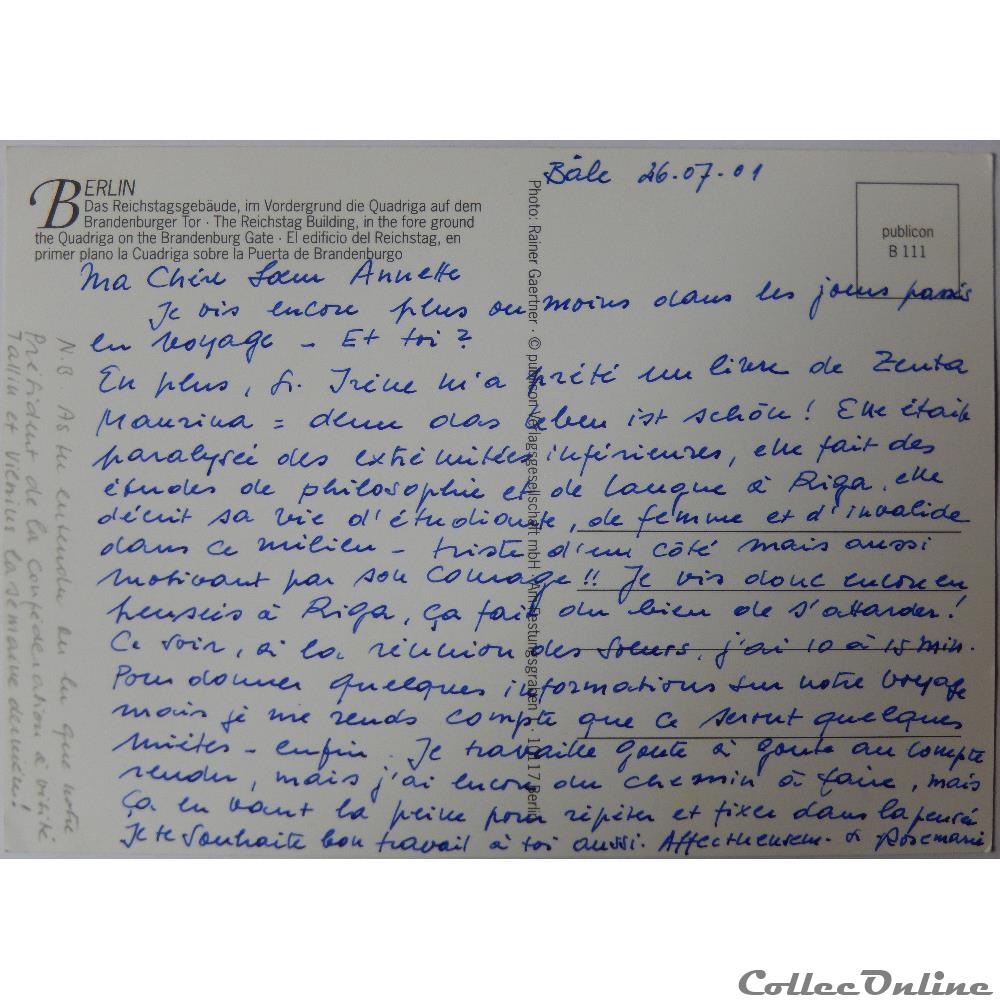 BERLIN
Das Reichstagsgebäude, im Vordergrund die Quadriga auf dem
Brandenburger Tor · The Reichstag Building, in the fore ground
the Quadriga on the Brandenburg Gate · El edificio del Reichstag, en
primer plano la Cuadriga sobre la Puerta de Brandenburgo
Bâle 26.07.01
publicon
B 111
Ma Chère Sœur Annette
Je vis encore plus ou moins dans les jours passés
en voyage – Et toi ?
En plus, Sr. Irène m'a prêté un livre de Zenta
Maurina = denn das Leben ist schön ! Elle était
paralysée des extrémitées inférieures, elle fait des
études de philosophie et de langue à Riga, elle
décrit sa vie d'étudiante, de femme et d'invalide
dans ce milieu – triste d'un côté mais aussi
motivant par son courage !! Je vis donc encore en
pensées à Riga, ça fait du bien de s'attarder !
Ce soir, à la réunion des Soeurs, j'ai 10 à 15 min.
Pour donner quelques informations sur notre voyage
mais je me rends compte que ce seront quelques
miètes – enfin. Je travaille goute à goute au compte
rendu, mais j'ai encore du chemin à faire, mais
ça en vaut la peine pour répéter et fixer dans la pensée
Je te souhaite bon travail à toi aussi. Affectueusem. Sr Rosemarie
N.B As tu entendu ou lu que notre
Président de la Confédération à visité
Tallin et Vilnius la semaine dernière !
Photo: Rainer Gaertner · © publicon Verlagsgesellschaft mbH · Am Festungsgraben 1 · 10117 Berlin
CollecOnline